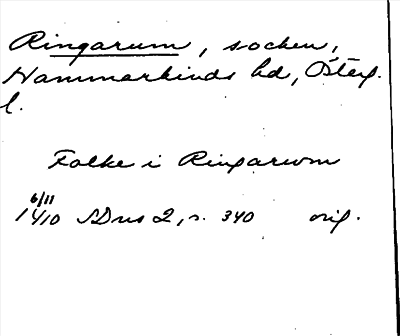 Ringarum, socken,
Hammarkinds hd, Österg.
l.
Folke i Ringarum
6/11
1410 SDns 2, s. 340 orig.